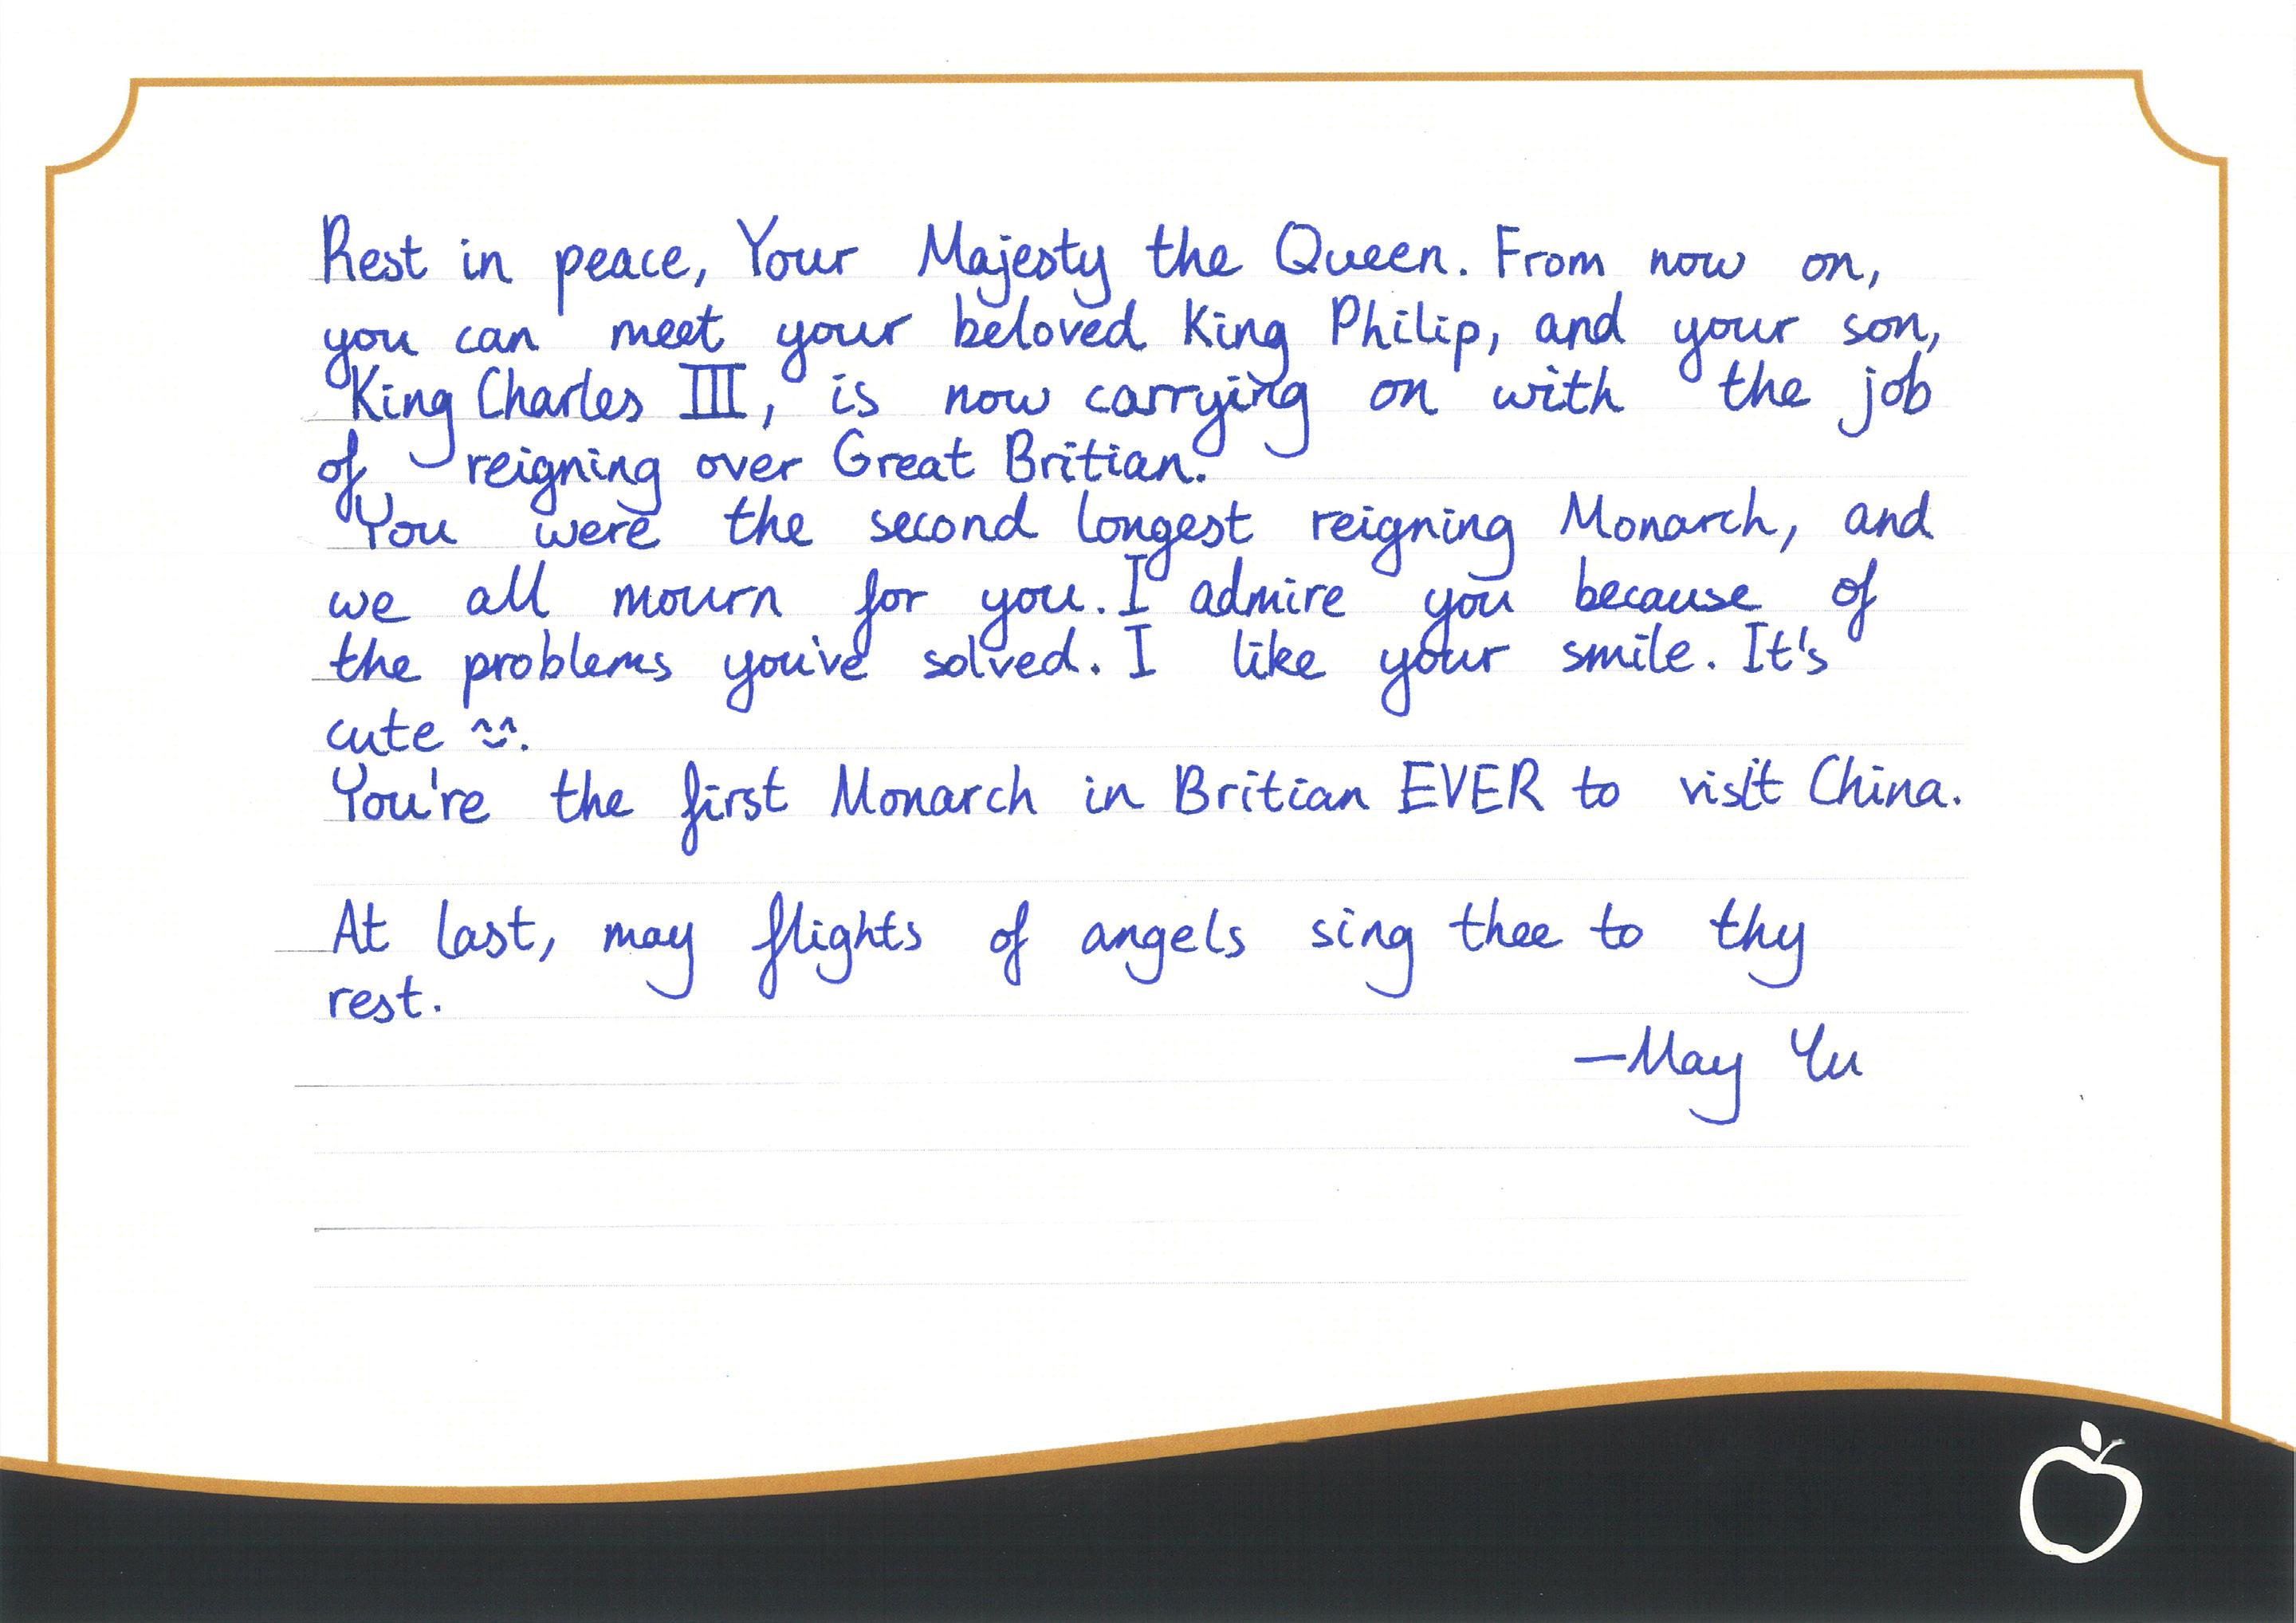 Rest in peace, Your Majesty the Queen. From now on,
you can meet your beloved King Philip, and your son,
King Charles III, is now carrying on with the job
of reigning over Great Britian.
You were the second longest reigning Monarch, and
we all mourn for you. I admire you because of
the problems you've solved. I like your smile. It's
cute ^^.
You're the first Monarch in Britian EVER to visit China.
At last, may flights of angels sing thee to thy
rest.
—May Yu